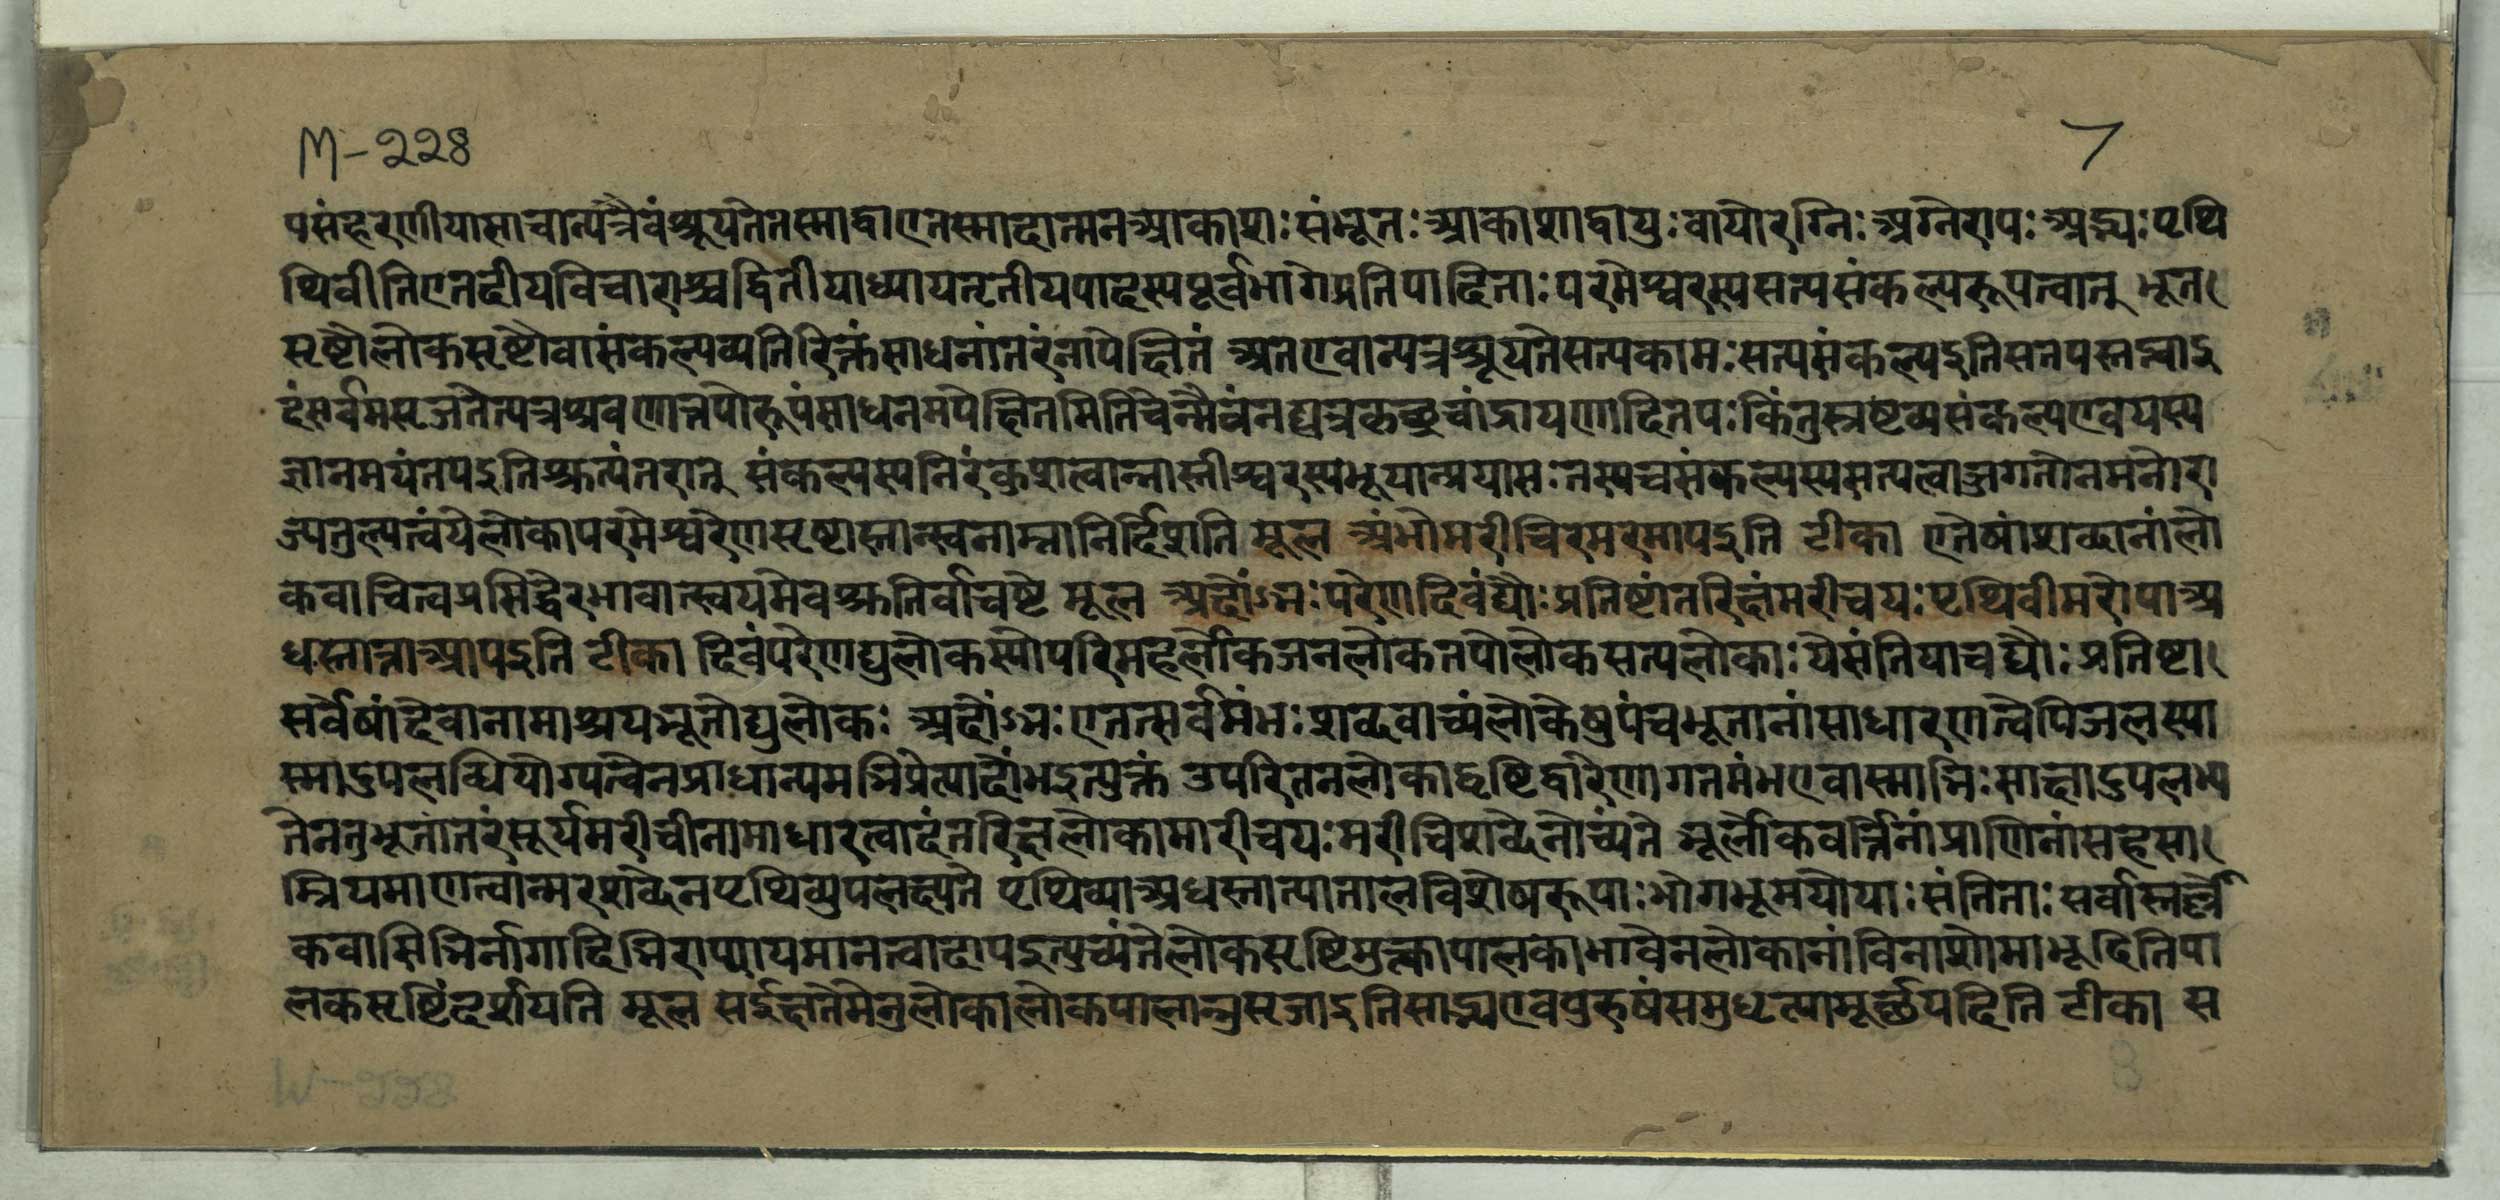 M-228
7
पसंहरणीयासाचान्यत्रैवंश्रूयतेतस्माद्वाएतस्मादात्मनआकाशः संभूतः आकाशाद्वायुः वायोरग्निः अग्नेरापः अद्भ्यः पृथि
थिवीतिएतदीयविचाराश्चद्वितीयाध्यायतृतीयपादस्यपूर्वभागेप्रतिपादिताः परमेश्वरस्यसत्यसंकल्परूपत्वात् भूत
सृष्टौलोकसृष्टौवासंकल्पव्यतिरिक्तंसाधनांतरंनापेक्षितं अतएवान्यत्रश्रूयतेसत्यकामः सत्यसंकल्पइतिसतपस्तप्त्वाइ
दंसर्वमसृजतेत्यत्रश्रवणात्तपोरूपंसाधनमपेक्षितमितिचेन्मैवंनह्यत्रकृच्छ्रचांद्रायणादितपः किंतुस्रष्टव्यसंकल्पएवयस्य
ज्ञानमयंतपइतिश्रुत्यंतरात् संकल्पस्यनिरंकुशत्वान्नास्तीश्वरस्यभूयान्प्रयासः तस्यचसंकल्पस्यसत्यत्वाज्जगतोनमनोरा
ज्यतुल्यत्वंयेलोकापरमेश्वरेणसृष्टास्तान्स्वनाम्नानिर्दिशति मूल अंभोमरीचिरमरमापइति टीका एतेषांशब्दानांलो
कवाचित्वप्रसिद्धेरभावात्स्वयमेवश्रुतिर्वाचष्टे मूल अदोंऽभः परेणदिवंद्यौः प्रतिष्टांतरिक्षंमरीचयः पृथिवीमरोपाअ
धस्तात्ताआपइति टीका दिवंपरेणद्युलोकस्योपरिमहर्लोकजनलोकतपोलोकसत्यलोकाः येसंतियाचद्यौः प्रतिष्टा
सर्वेषांदेवानामाश्रयभूतोद्युलोकः अदोंऽभः एतत्सर्वमंभः शब्दवाच्यंलोकेषुपंचभूतानांसाधारणत्वेपिजलस्या
स्मादुपलब्धियोग्यत्वेनप्राधान्यमभिप्रेत्यादोंभइत्युक्तं उपरितनलोकाद्वृष्टिद्वारेणागतमंभएवास्माभिः साक्षादुपलभ्य
तेनतुभूतांतरंसूर्यमरीचीनामाधारत्वादंतरिक्षलोकामारीचयः मरीचिशब्देनोच्यंते भूर्लोकवर्त्तिनांप्राणिनांसहसा
म्रियमाणत्वान्मरशब्देनपृथिव्युपलक्ष्यते पृथिव्याअधस्तात्पातालविशेषरूपाः भोगभूमयोयाः संतिताः सर्वास्तल्लो
कवासिभिर्नागादिभिराप्यायमानत्वादापइत्युच्यंतेलोकसृष्टिमुत्क्वापालकाभावेनलोकानांविनाशोमाभूदितिपा
लकसृष्टिंदर्शयति मूल सईक्षतेमेनुलोकालोकपालान्नुसृजाइतिसोद्भ्यएवपुरुषंसमुधृत्यामूर्छयदिति टीका स